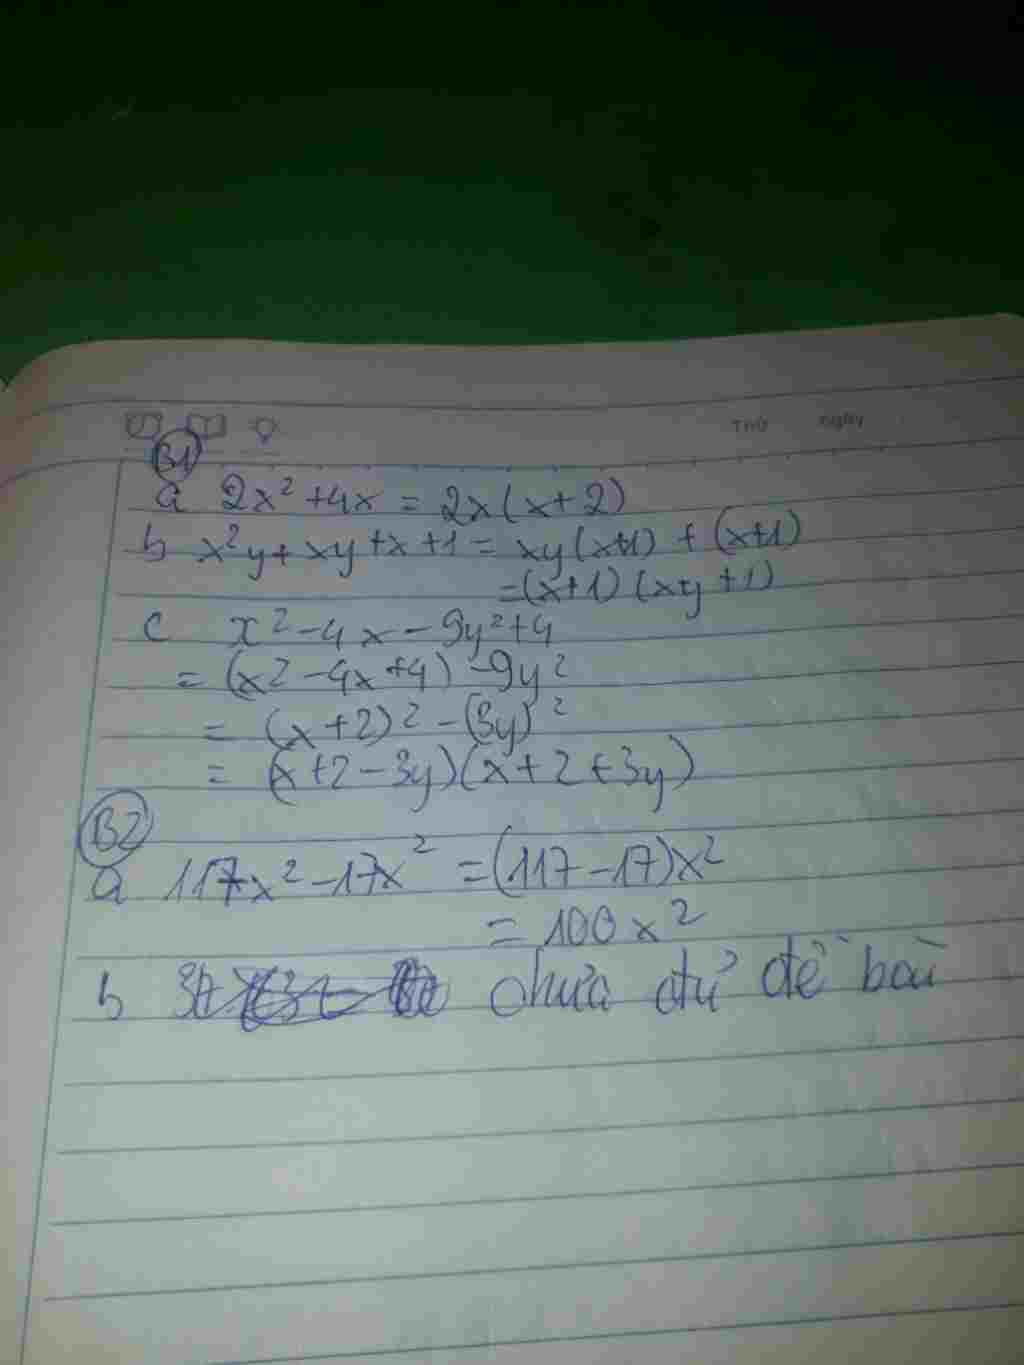 Thứ ngày
B1
a 2x² + 4x = 2x(x+2)
b x²y + xy + x + 1 = xy(x+1) + (x+1)
= (x+1)(xy+1)
c x² - 4x - 9y² + 4
= (x² - 4x + 4) - 9y²
= (x+2)² - (3y)²
= (x+2-3y)(x+2+3y)
B2
a 117x² - 17x² = (117-17)x²
= 100x²
b chưa đủ đề bài